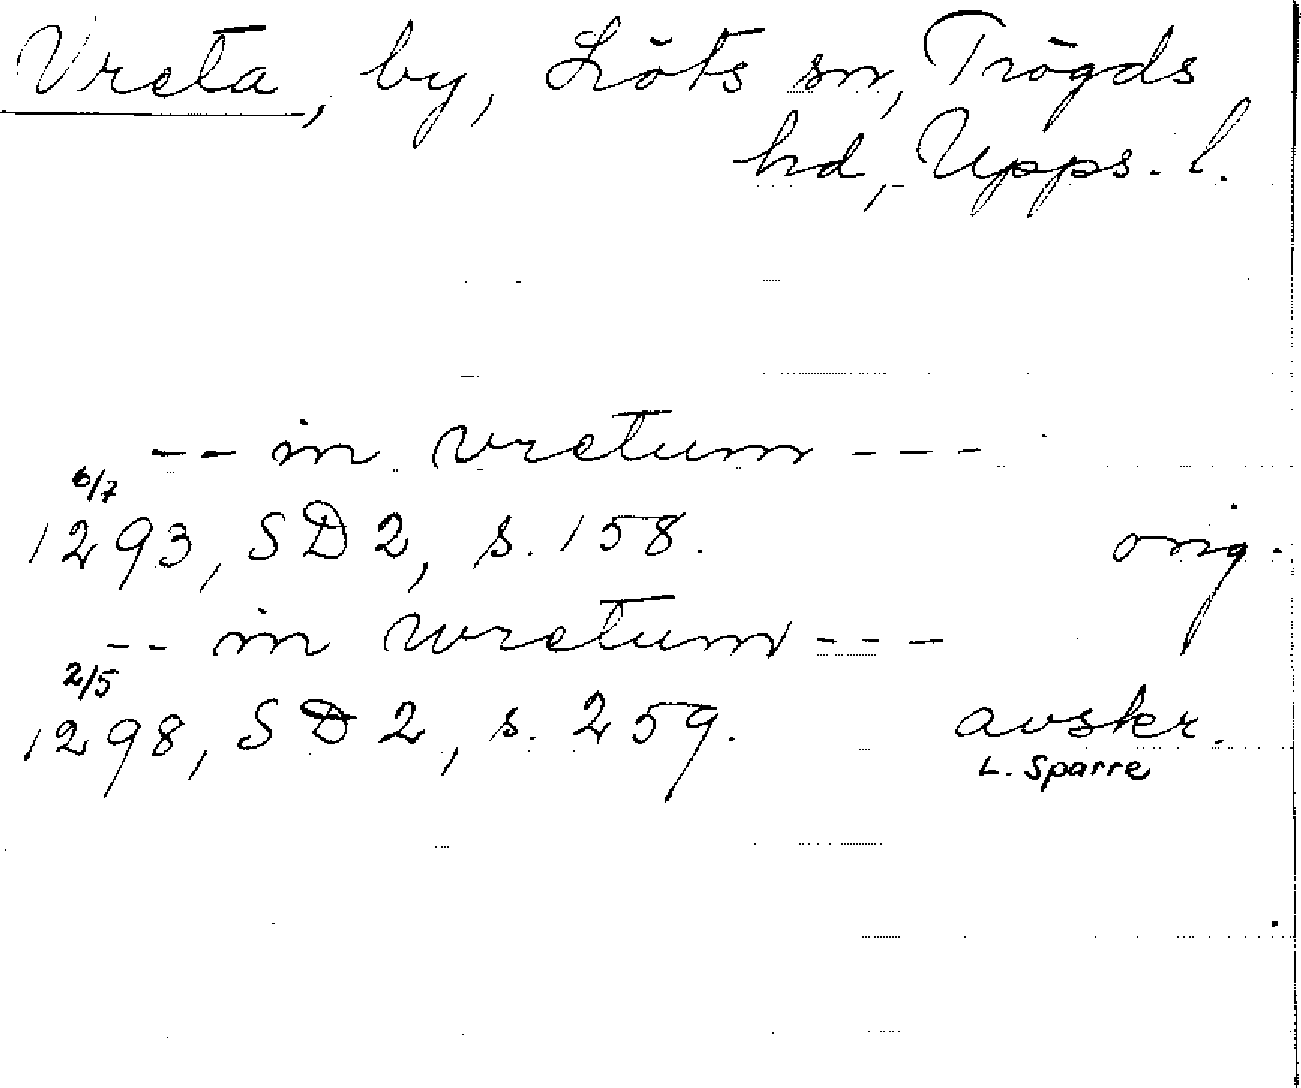 Vreta, by, Löts sn, Trögds
hd, Upps. l.
-- in vretum ---
6/7
1293, SD 2, s. 158. orig.
-- in wretum ---
2/5
1298, SD 2, s. 259. avskr.
L. Sparre